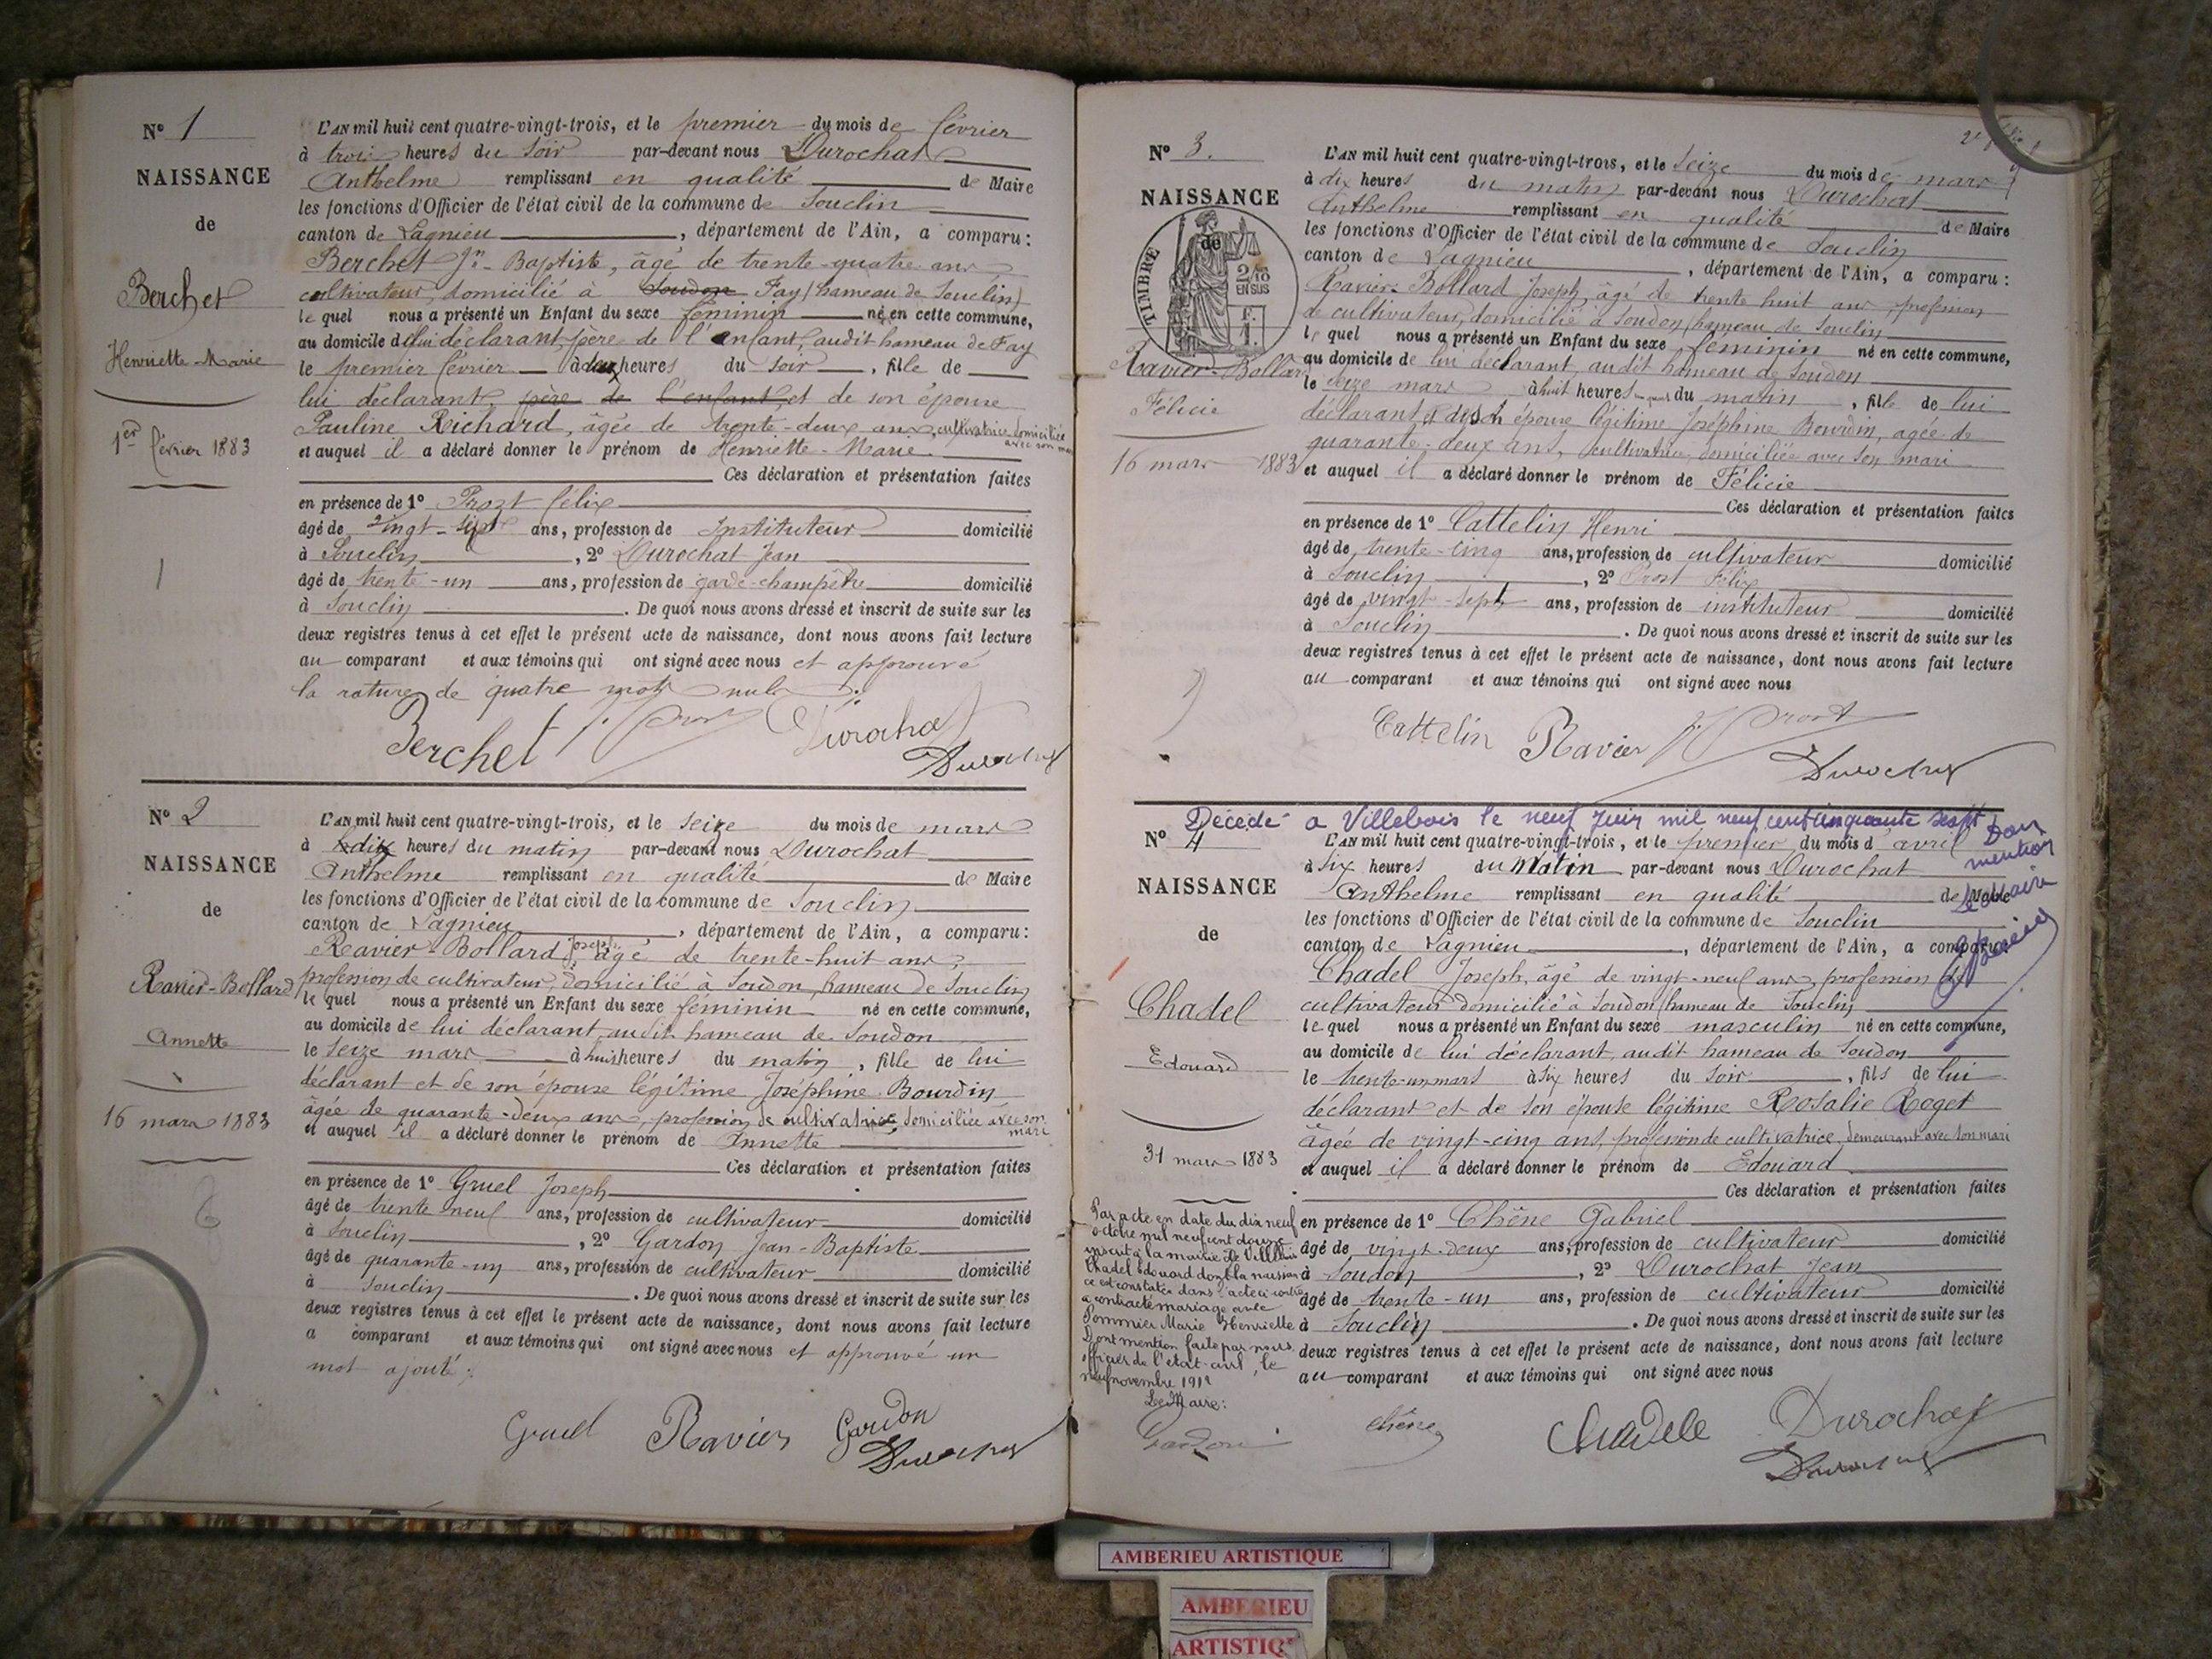 N° 1
NAISSANCE
de
Berchet
Henriette-Marie
1er février 1883
1
L'AN mil huit cent quatre-vingt-trois, et le premier du mois de février
à trois heures du soir par-devant nous Durochat
Anthelme remplissant en qualité de Maire
les fonctions d'Officier de l'état civil de la commune de Souclin
canton de Lagnieu, département de l'Ain, a comparu :
Berchet Jn-Baptiste, âgé de trente-quatre ans
cultivateur, domicilié à Soudon Fay (hameau de Souclin)
le quel nous a présenté un Enfant du sexe féminin né en cette commune,
au domicile de lui déclarant, père de l'enfant, audit hameau de Fay
le premier février à deux heures du soir, fille de
lui déclarant, père de l'enfant, et de son épouse
Pauline Richard, âgée de trente-deux ans, cultivatrice domiciliée
avec son mari
et auquel il a déclaré donner le prénom de Henriette-Marie
Ces déclaration et présentation faites
en présence de 1° Prost Félix
âgé de vingt-sept ans, profession de Instituteur domicilié
à Souclin, 2° Durochat Jean
âgé de trente-un ans, profession de garde-champêtre domicilié
à Souclin. De quoi nous avons dressé et inscrit de suite sur les
deux registres tenus à cet effet le présent acte de naissance, dont nous avons fait lecture
au comparant et aux témoins qui ont signé avec nous et approuvé
la rature de quatre mots nuls
Berchet F. Prost Durochat
Durochat
N° 2
NAISSANCE
de
Ravier-Bollard
Annette
16 mars 1883
L'AN mil huit cent quatre-vingt-trois, et le seize du mois de mars
à dix heures du matin par-devant nous Durochat
Anthelme remplissant en qualité de Maire
les fonctions d'Officier de l'état civil de la commune de Souclin
canton de Lagnieu, département de l'Ain, a comparu :
Ravier-Bollard Joseph, âgé de trente-huit ans,
profession de cultivateur, domicilié à Soudon, hameau de Souclin
le quel nous a présenté un Enfant du sexe féminin né en cette commune,
au domicile de lui déclarant, audit hameau de Soudon
le seize mars à huit heures du matin, fille de lui
déclarant et de son épouse légitime Joséphine Bourdin
âgée de quarante-deux ans, profession de cultivatrice, domiciliée avec son
mari
et auquel il a déclaré donner le prénom de Annette
Ces déclaration et présentation faites
en présence de 1° Gruel Joseph
âgé de trente neuf ans, profession de cultivateur domicilié
à Souclin, 2° Gardon Jean-Baptiste
âgé de quarante-un ans, profession de cultivateur domicilié
à Souclin. De quoi nous avons dressé et inscrit de suite sur les
deux registres tenus à cet effet le présent acte de naissance, dont nous avons fait lecture
a comparant et aux témoins qui ont signé avec nous et approuvé un
mot ajouté.
Gruel Ravier Gardon
Durochat
N° 3.
NAISSANCE
de
TIMBRE
2/10
EN SUS
F.
1.
Ravier-Bollard
Félicie
16 mars 1883
L'AN mil huit cent quatre-vingt-trois, et le seize du mois de mars
à dix heures du matin par-devant nous Durochat
Anthelme remplissant en qualité de Maire
les fonctions d'Officier de l'état civil de la commune de Souclin
canton de Lagnieu, département de l'Ain, a comparu :
Ravier-Bollard Joseph, âgé de trente huit ans, profession
de cultivateur, domicilié à Soudon, hameau de Souclin
le quel nous a présenté un Enfant du sexe féminin né en cette commune,
au domicile de lui déclarant, audit hameau de Soudon
le seize mars à huit heures un quart du matin, fille de lui
déclarant et de son épouse légitime Joséphine Bourdin, agée de
quarante-deux ans, cultivatrice, domiciliée avec son mari
et auquel il a déclaré donner le prénom de Félicie
Ces déclaration et présentation faites
en présence de 1° Cattelin Henri
âgé de trente-cinq ans, profession de cultivateur domicilié
à Souclin, 2° Prost Félix
âgé de vingt-sept ans, profession de instituteur domicilié
à Souclin. De quoi nous avons dressé et inscrit de suite sur les
deux registres tenus à cet effet le présent acte de naissance, dont nous avons fait lecture
au comparant et aux témoins qui ont signé avec nous
Cattelin Ravier F. Prost
Durochat
Décédé à Villebois le neuf juin mil neuf cent cinquante sept
Dont
mention
Le Maire
N° 4
NAISSANCE
de
Chadel
Edouard
31 mars 1883
L'AN mil huit cent quatre-vingt-trois, et le premier du mois d'avril
à six heures du Matin par-devant nous Durochat
Anthelme remplissant en qualité de Maire
les fonctions d'Officier de l'état civil de la commune de Souclin
canton de Lagnieu, département de l'Ain, a comparu :
Chadel Joseph, âgé de vingt-neuf ans, profession de
cultivateur domicilié à Soudon (hameau de Souclin)
le quel nous a présenté un Enfant du sexe masculin né en cette commune,
au domicile de lui déclarant, audit hameau de Soudon
le trente-un mars à six heures du soir, fils de lui
déclarant et de son épouse légitime Rosalie Roget
âgée de vingt-cinq ans, profession de cultivatrice, demeurant avec son mari
et auquel il a déclaré donner le prénom de Edouard
Ces déclaration et présentation faites
en présence de 1° Chêne Gabriel
âgé de vingt-deux ans, profession de cultivateur domicilié
à Soudon, 2° Durochat Jean
âgé de trente-un ans, profession de cultivateur domicilié
à Souclin. De quoi nous avons dressé et inscrit de suite sur les
deux registres tenus à cet effet le présent acte de naissance, dont nous avons fait lecture
au comparant et aux témoins qui ont signé avec nous
Par acte en date du dix neuf
octobre mil neuf cent douze
inscrit à la mairie de Villebois
Chadel Edouard dont la naissan
ce est constatée dans l'acte ci contre
a contracté mariage avec
Pommier Marie Henriette
Dont mention faite par nous,
officier de l'état-civil, le
neuf novembre 1912
Le Maire :
Gardon
Chêne Chadel Durochat
Durochat
AMBERIEU ARTISTIQUE
AMBERIEU
ARTISTIQ